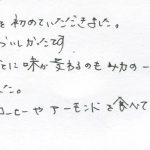 を初めていただきました。
いしかったです
とに味が変わるのも魅力の一
た。
コーヒーやアーモンドを食べて